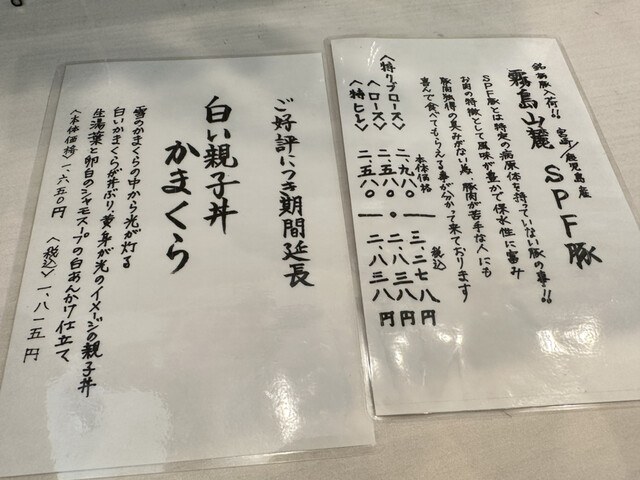 銘柄豚入荷!! 宮崎/鹿児島産
霧島山麓 SPF豚
SPF豚とは特定の病原体を持っていない豚の事!!
お肉の特徴として風味が豊かで保水性に富み
豚肉独得の臭みがない為、豚肉が苦手な人にも
喜んで食べてもらえる事が分かって来ております
本体価格 税込
〈特リブロース〉 二、九八〇 ー 三、二七八円
〈ロース〉 二、五八〇 ・ 二、八三八円
〈特ヒレ〉 二、五八〇 ー 二、八三八円
ご好評につき期間延長
白い親子丼
かまくら
雪のかまくらの中から光が灯る
白いかまくらが丼ぶり・黄身が光のイメージの親子丼
生湯葉と卵白のシャモスープの白あんかけ仕立て
〈本体価格〉一、六五〇円 〈税込〉一、八一五円